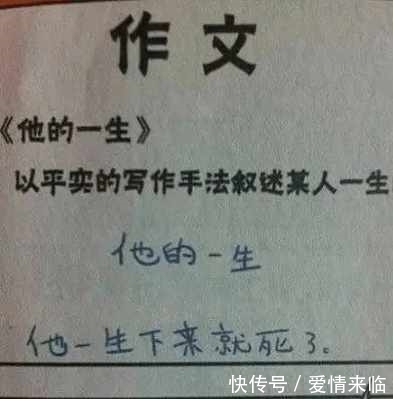 作文
《他的一生》
以平实的写作手法叙述某人一生
他的一生
他一生下来就死了。
快传号/爱情来临